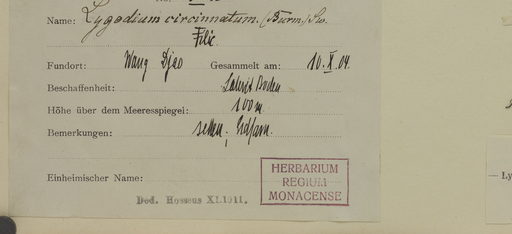 Name: Lygodium circinnatum. (Burm.) Sw.
Filic
Fundort: Wang Djao Gesammelt am: 10. X. 04
Beschaffenheit: Laterit Boden
Höhe über dem Meeresspiegel: 100 m
Bemerkungen: selten, Erdfarn.
Einheimischer Name:
HERBARIUM
REGIUM
MONACENSE
Ded. Hosseus XI.1911.
— Ly